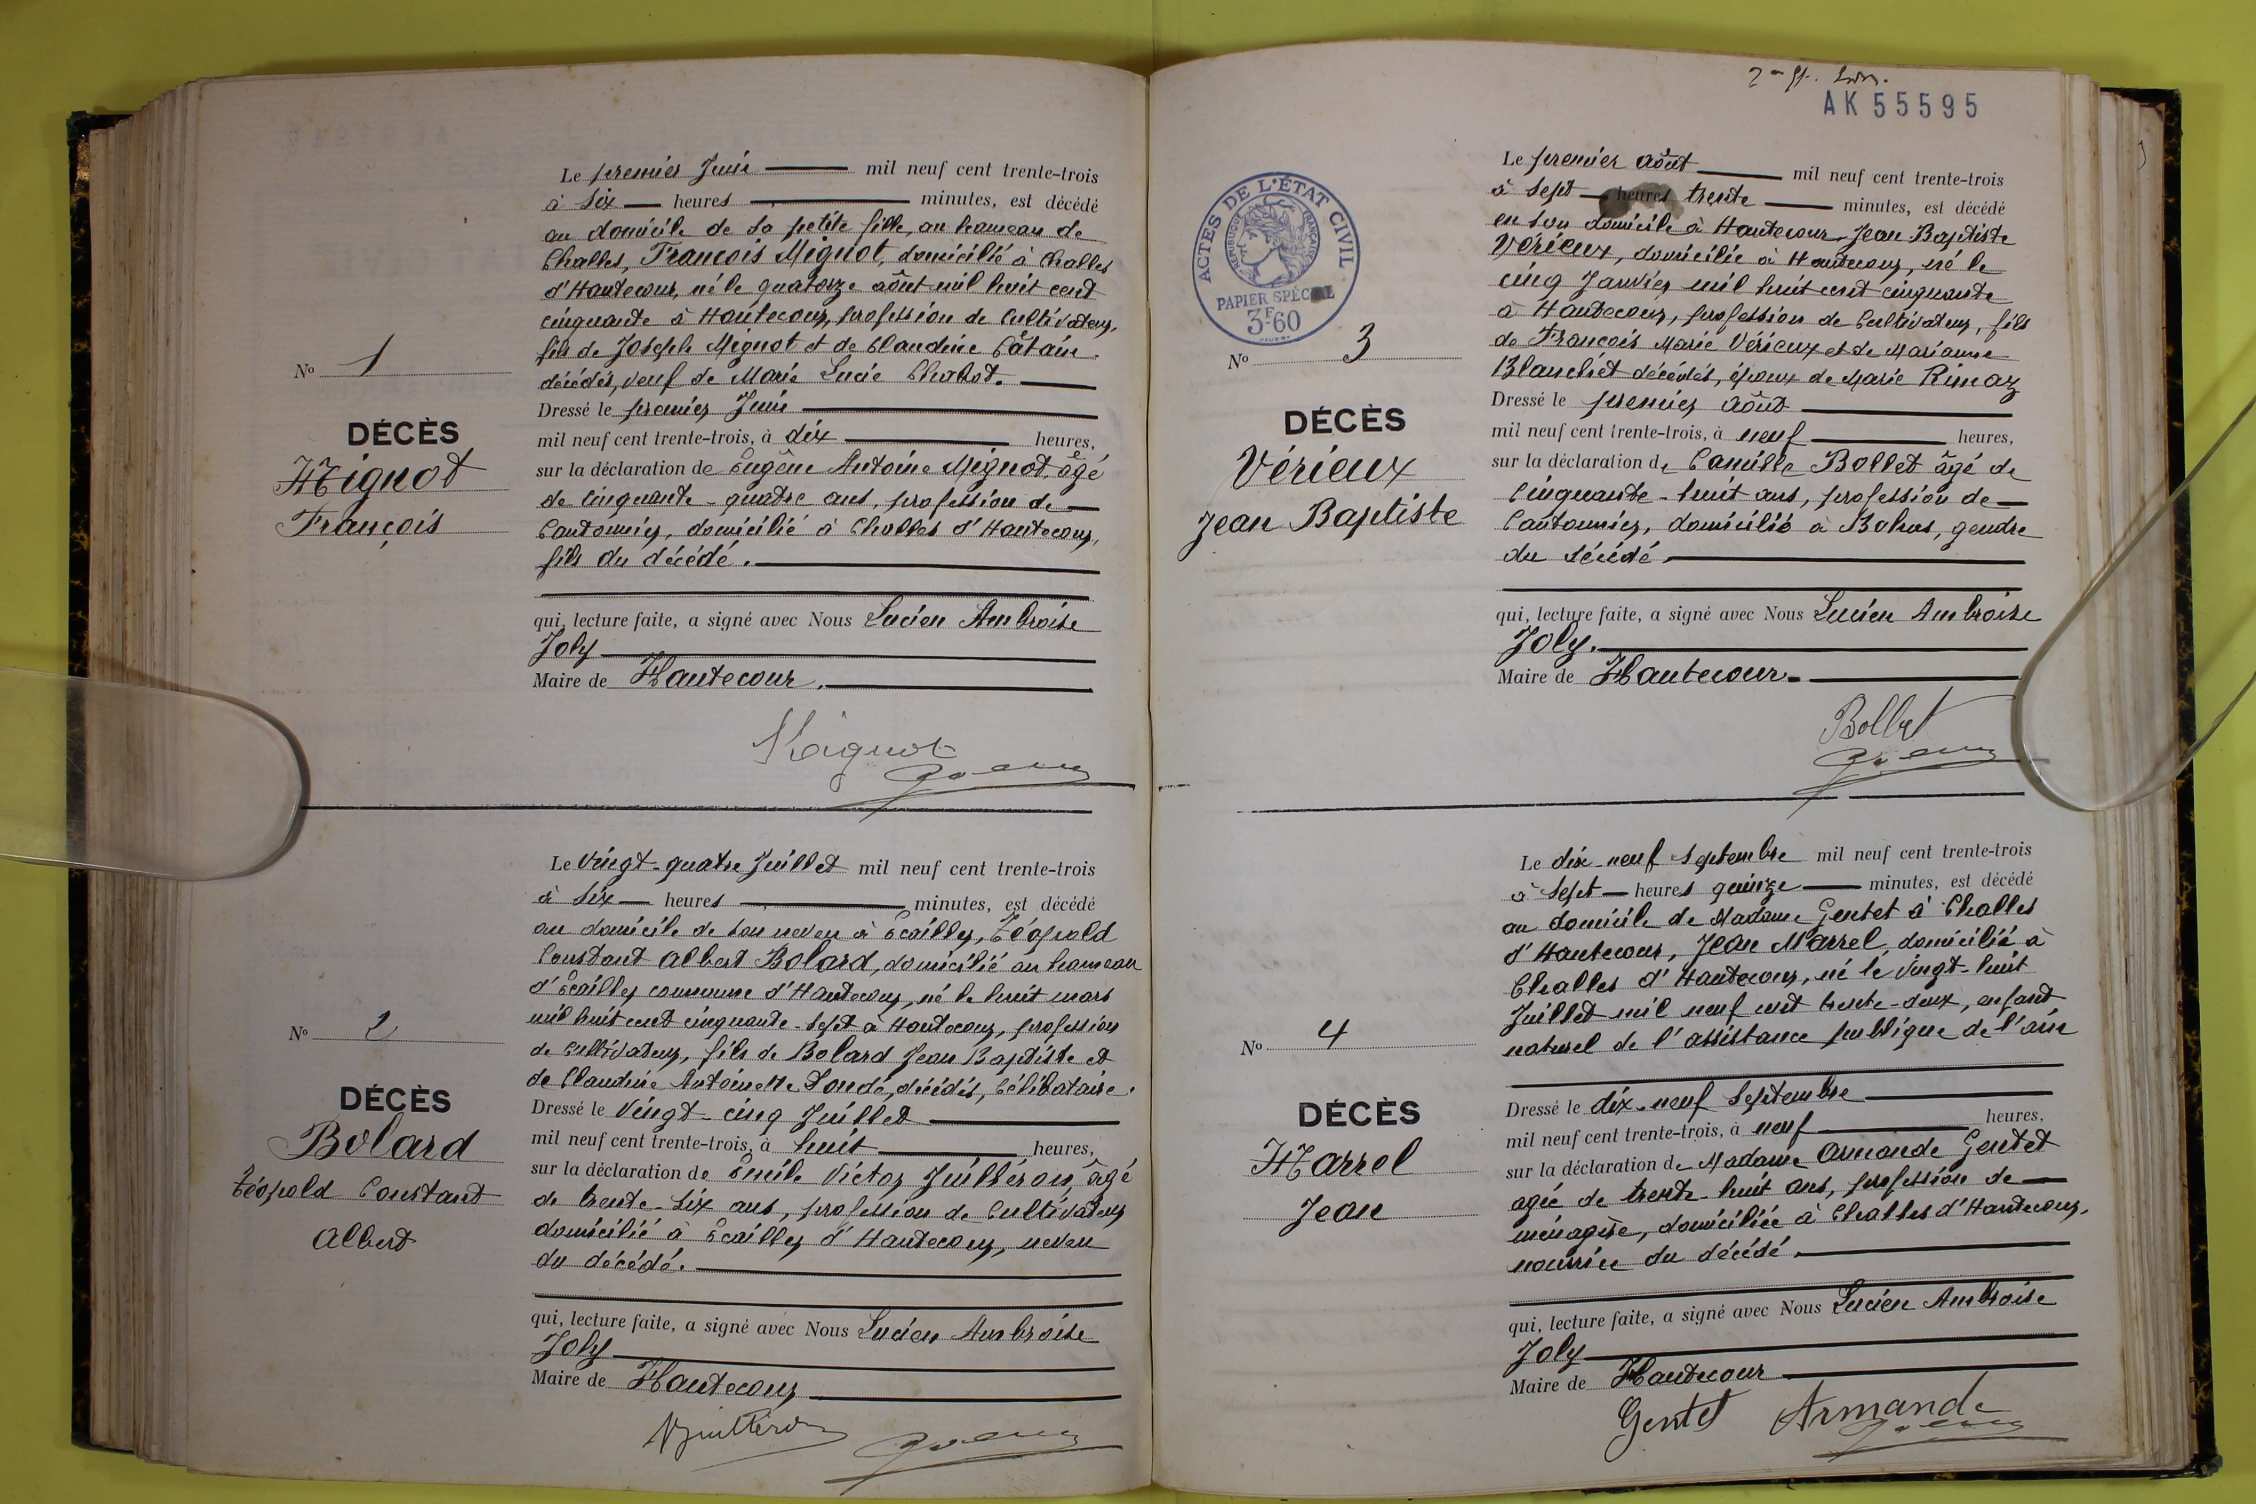 Le premier Juin mil neuf cent trente-trois
à six heures minutes, est décédé
au domicile de sa petite fille, au hameau de
Challes, François Mignot, domicilié à Challes
d'Hautecour, né le quatorze août mil huit cent
cinquante à Hautecour, profession de Cultivateur,
fils de Joseph Mignot et de Claudine
décédés, veuf de Marie Lucie
Dressé le premier Juin
mil neuf cent trente-trois, à dix heures,
sur la déclaration de Eugène Antoine Mignot, âgé
de cinquante-quatre ans, profession de
Cantonnier, domicilié à Challes d'Hautecour,
fils du décédé.
qui, lecture faite, a signé avec Nous Lucien Ambroise
Joly
Maire de Hautecour.
Mignot
No 1
DÉCÈS
Mignot
François
Le vingt-quatre Juillet mil neuf cent trente-trois
à six heures minutes, est décédé
au domicile de son neveu à Écailley, Léopold
Constant Albert Bolard, domicilié au hameau
d'Écailley commune d'Hautecour, né le huit mars
mil huit cent cinquante-sept à Hautecour, profession
de Cultivateur, fils de Bolard Jean Baptiste et
de Claudine Antoinette décédés, Célibataire.
Dressé le Vingt-cinq Juillet
mil neuf cent trente-trois, à huit heures,
sur la déclaration de Émile Victor âgé
de trente-six ans, profession de Cultivateur
domicilié à Écailley d'Hautecour, neveu
du décédé.
qui, lecture faite, a signé avec Nous Lucien Ambroise
Joly
Maire de Hautecour
No 2
DÉCÈS
Bolard
Léopold Constant
Albert
AK 55595
ACTES DE L'ÉTAT CIVIL
RÉPUBLIQUE FRANÇAISE
PAPIER SPÉCIAL
3F60
Le premier août mil neuf cent trente-trois
à sept heures trente minutes, est décédé
en son domicile à Hautecour Jean Baptiste
Vérieux, domicilié à Hautecour, né le
cinq Janvier mil huit cent cinquante
à Hautecour, profession de Cultivateur, fils
de François Marie Vérieux et de Marianne
Blanchet décédés, époux de Marie Rimaz
Dressé le premier août
mil neuf cent trente-trois, à neuf heures,
sur la déclaration de Camille Bollet âgé de
Cinquante-huit ans, profession de
Cantonnier, domicilié à Bohas, gendre
du décédé
qui, lecture faite, a signé avec Nous Lucien Ambroise
Joly.
Maire de Hautecour
Bollet
No 3
DÉCÈS
Vérieux
Jean Baptiste
Le dix-neuf septembre mil neuf cent trente-trois
à sept heures quinze minutes, est décédé
au domicile de Madame Gentet à Challes
d'Hautecour, Jean Marrel, domicilié à
Challes d'Hautecour, né le vingt-huit
Juillet mil neuf cent trente-deux, enfant
naturel de l'assistance publique de l'ain
Dressé le dix-neuf Septembre
mil neuf cent trente-trois, à neuf heures,
sur la déclaration de Madame Armande Gentet
agée de trente-huit ans, profession de
ménagère, domiciliée à Challes d'Hautecour,
nourrice du décédé.
qui, lecture faite, a signé avec Nous Lucien Ambroise
Joly
Maire de Hautecour
Gentet Armande
No 4
DÉCÈS
Marrel
Jean